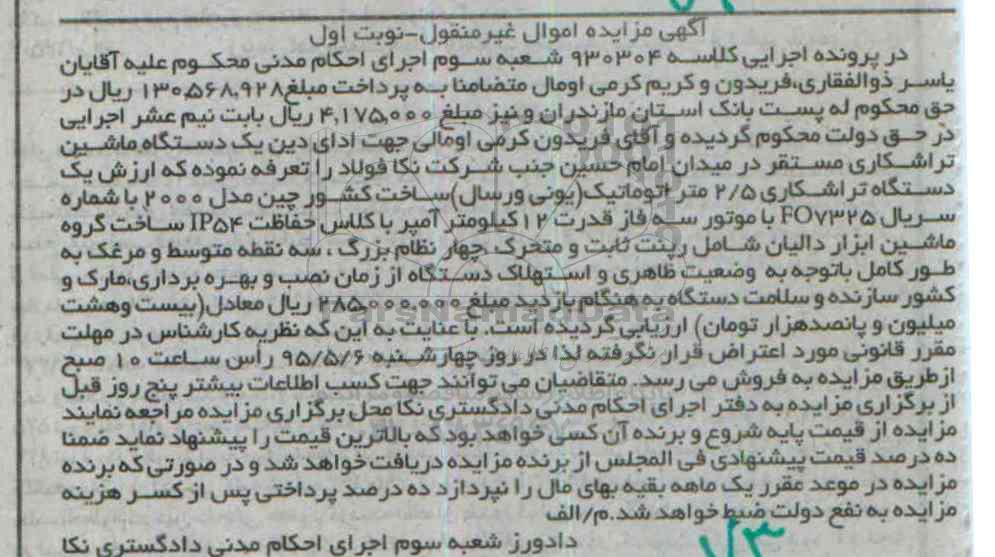 آگهی مزایده اموال غیرمنقول-نوبت اول
در پرونده اجرایی کلاسه ۹۳۰۳۰۴ شعبه سوم اجرای احکام مدنی محکوم علیه آقایان
یاسر ذوالفقاری،فریدون و کریم کرمی اومال متضامنا به پرداخت مبلغ۱۳۰،۵۶۸،۹۲۸ ریال در
حق محکوم له پست بانک استان مازندران و نیز مبلغ ۴،۱۷۵،۰۰۰ ریال بابت نیم عشر اجرایی
در حق دولت محکوم گردیده و آقای فریدون کرمی اومالی جهت ادای دین یک دستگاه ماشین
تراشکاری مستقر در میدان امام حسین جنب شرکت نکا فولاد را تعرفه نموده که ارزش یک
دستگاه تراشکاری ۲/۵ متر اتوماتیک(یونی ورسال)ساخت کشور چین مدل ۲۰۰۰ با شماره
سریال FO۷۳۲۵ با موتور سه فاز قدرت ۱۲ کیلومتر آمپر با کلاس حفاظت IP۵۴ ساخت گروه
ماشین ابزار دالیان شامل ریئت ثابت و متحرک ،چهار نظام بزرگ ، سه نقطه متوسط و مرغک به
طور کامل باتوجه به وضعیت ظاهری و استهلاک دستگاه از زمان نصب و بهره برداری،مارک و
کشور سازنده و سلامت دستگاه به هنگام بازدید مبلغ ۲۸۵،۰۰۰،۰۰۰ ریال معادل(بیست وهشت
میلیون و پانصدهزار تومان) ارزیابی گردیده است. با عنایت به این که نظریه کارشناس در مهلت
مقرر قانونی مورد اعتراض قرار نگرفته لذا در روز چهارشنبه ۹۵/۵/۶ راس ساعت ۱۰ صبح
ازطریق مزایده به فروش می رسد. متقاضیان می توانند جهت کسب اطلاعات بیشتر پنج روز قبل
از برگزاری مزایده به دفتر اجرای احکام مدنی دادگستری نکا محل برگزاری مزایده مراجعه نمایند
مزایده از قیمت پایه شروع و برنده آن کسی خواهد بود که بالاترین قیمت را پیشنهاد نماید ضمنا
ده درصد قیمت پیشنهادی فی المجلس از برنده مزایده دریافت خواهد شد و در صورتی که برنده
مزایده در موعد مقرر یک ماهه بقیه بهای مال را نپردازد ده درصد پرداختی پس از کسر هزینه
مزایده به نفع دولت ضبط خواهد شد.م/الف
دادورز شعبه سوم اجرای احکام مدنی دادگستری نکا
ParsNamadData